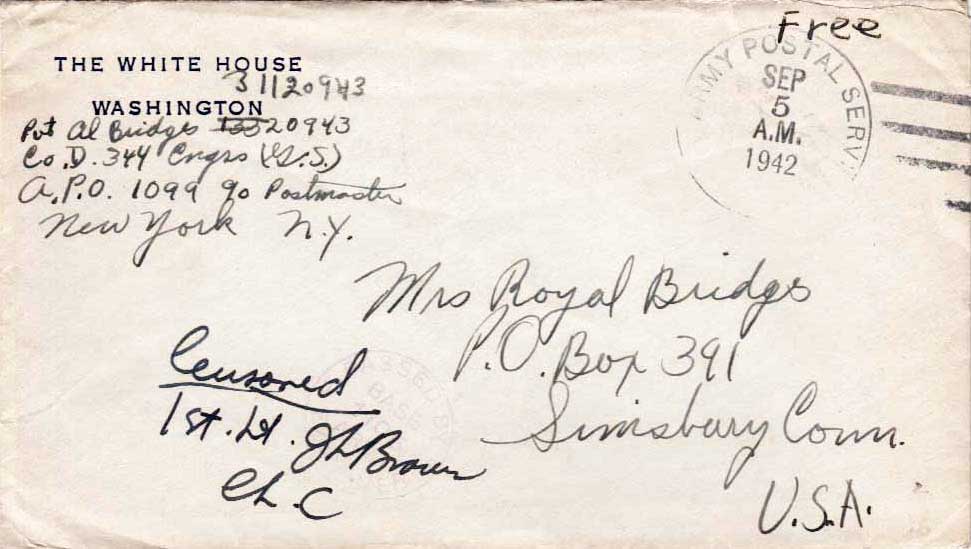 Free
THE WHITE HOUSE
31120943
WASHINGTON
Pvt Al Bridges 13320943
Co. D. 344 Engrs (G.S.)
A.P.O. 1099 % Postmaster
New York N.Y.
ARMY POSTAL SERV
SEP
5
A.M.
1942
Mrs Royal Bridges
P.O. Box 391
Simsbury Conn.
U.S.A.
Censored
1st. Lt. JL Brown
Ch. C
PASSED BY
BASE